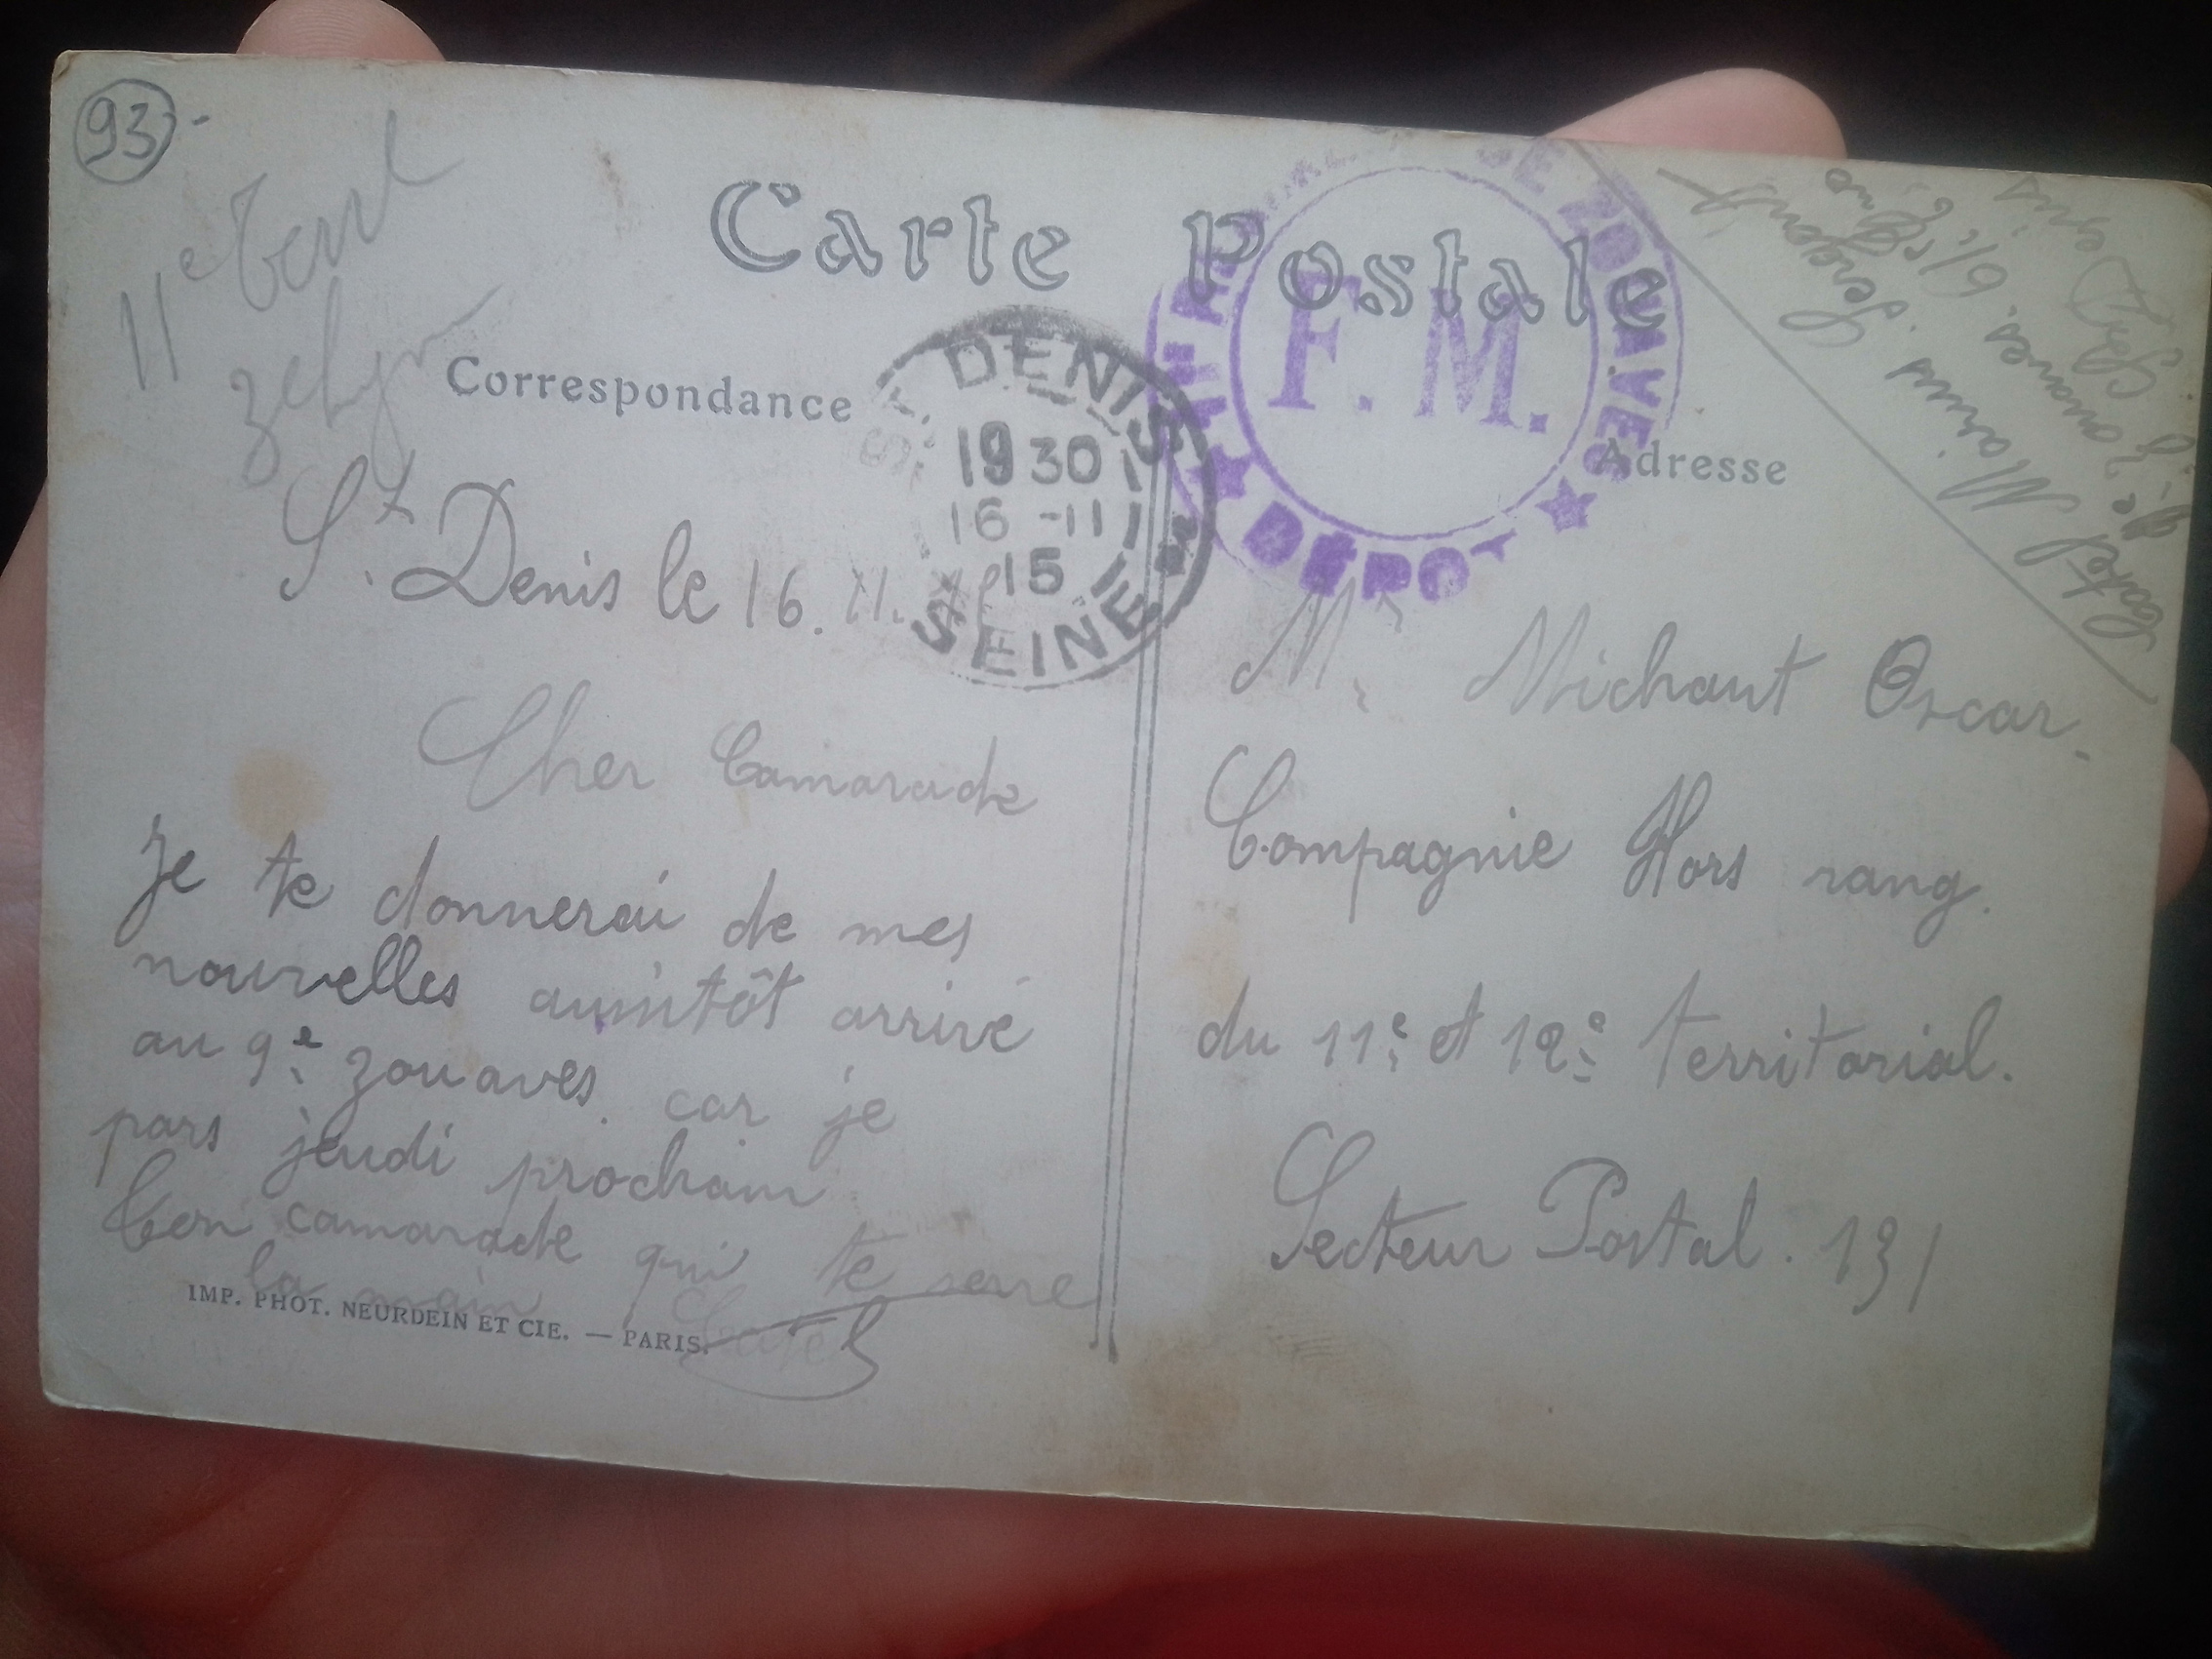 93
11e terr
Carte Postale
Correspondance
Adresse
ST. DENIS
19 30
16 -11
15
SEINE
F. M.
DE ZOUAVES
DÉPOT
Catel Marius Sergent
9e Zouaves. 6e Cie
St Denis le 16. 11.
Cher Camarade
Je te donnerai de mes
nouvelles aussitôt arrivé
au 9e zouaves. car je
pars jeudi prochain
Ton camarade qui te serre
la main
Catel
Mr. Michaut Oscar.
Compagnie Hors rang.
du 11e et 12e territorial.
Secteur Postal. 131
IMP. PHOT. NEURDEIN ET CIE. — PARIS.